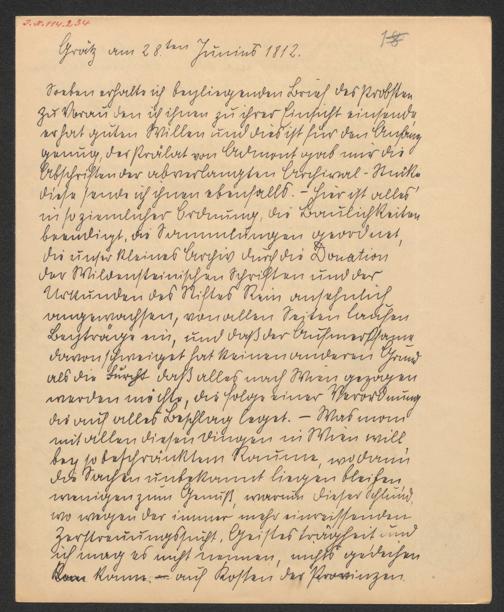 J.N. 114.234
18
Grätz am 28ten Junius 1812.
Soeben erhalte ich beyliegenden Brief des Probsten
zu Vorau den ich ihnen zu ihrer Einsicht einsende
er hat guten Willen und dies ist für den Anfang
genug, der Prälat von Admont gab mir die
Abschriften der abverlangten Archival-Stücke
diese sende ich ihnen ebenfalls. – Hier ist alles
in so ziemlicher Ordnung, die Baulichkeiten
beendigt, die Sammlungen geordnet,
die unser kleines Archiv durch die Donation
der Wildensteinischen Schriften und der
Urkunden des Stiftes Rein ansehnlich
angewachsen, von allen Seiten laufen
Beyträge ein, und daß der
davon schweiget hat keinen anderen Grund
als die Furcht daß alles nach Wien gezogen
werden möchte, die Folge einer Verordnung
die auf alles Beschlag leget. – Was man
mit allen diesen Dingen in Wien will
bey so beschränktem Raume, wo dann
die Sachen unbekannt liegen bleiben
wenigen zum Genuß, warum dieser Schlund,
wo wegen der immer mehr einreissenden
Zerstreuungssucht, Geistesträgheit und
ich mag es nicht nennen, nichts gedeihen
kann. – auf Kosten der Provinzen